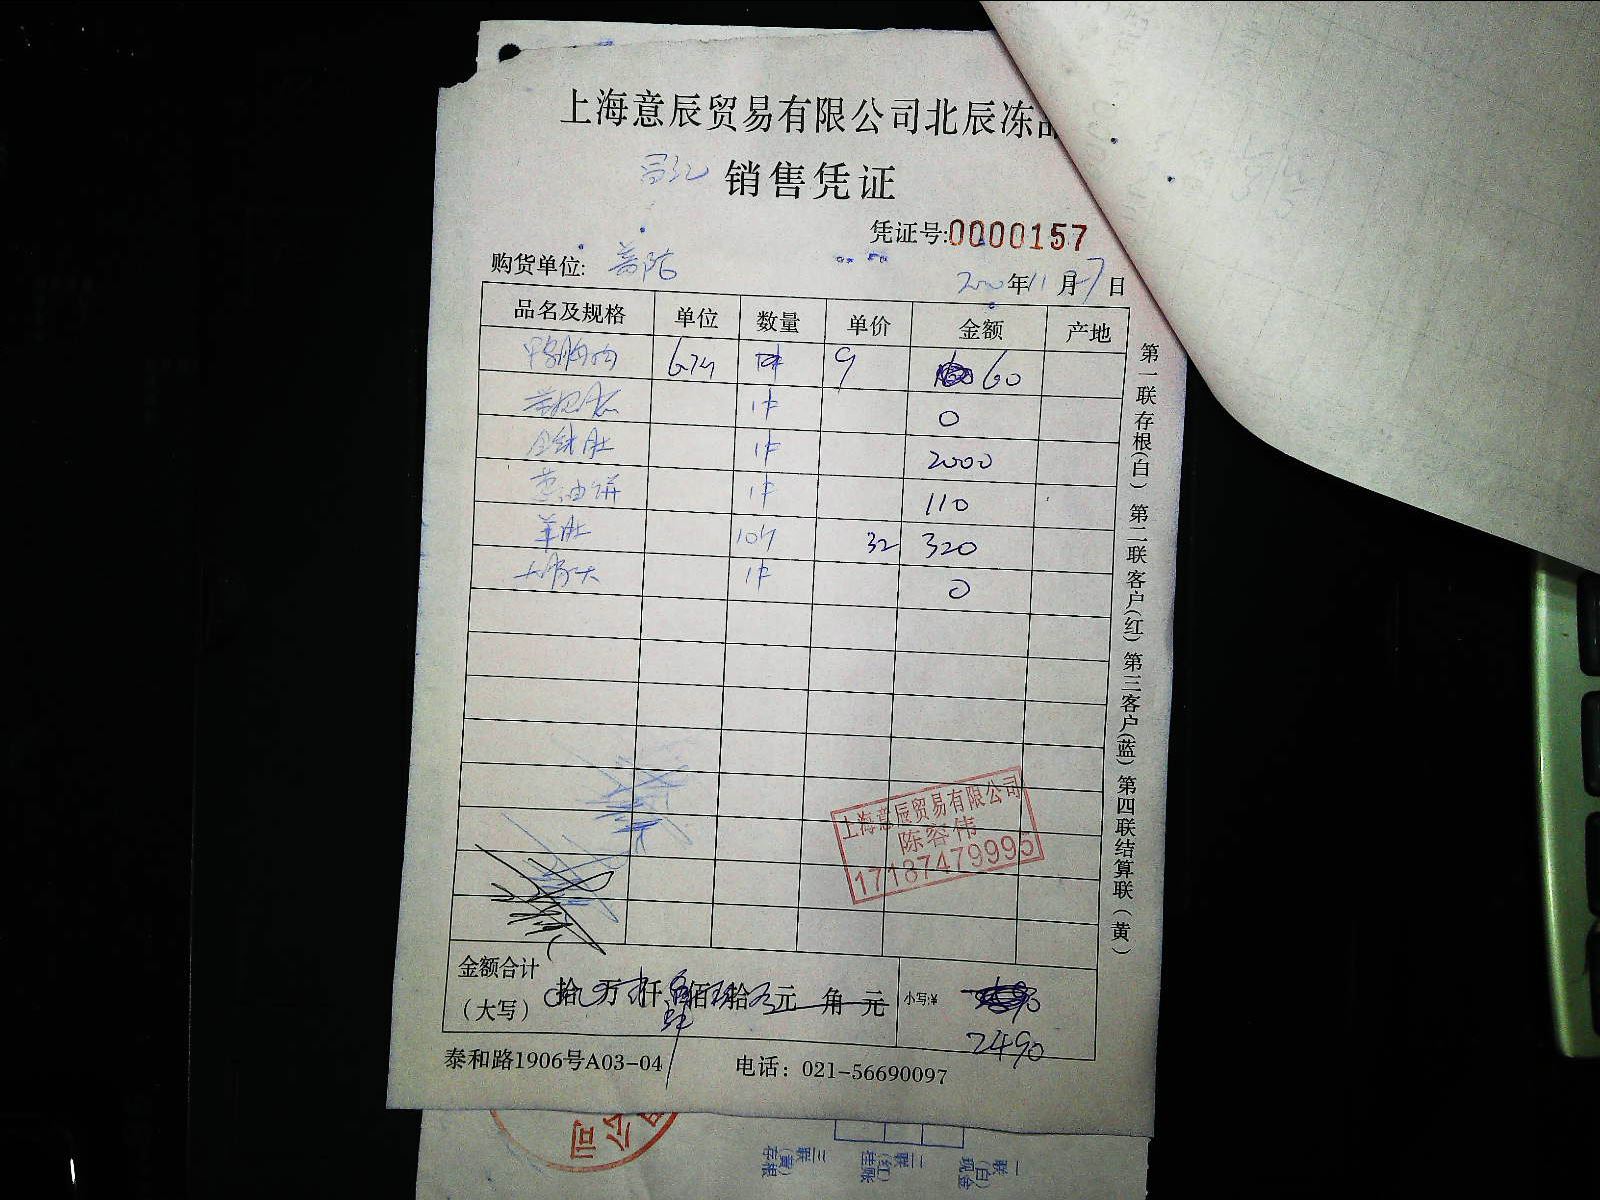 上海意辰贸易有限公司北辰冻品
销售凭证
凭证号:0000157
购货单位:
年11月7日
品名及规格 单位 数量 单价 金额 产地
9 60
1件 0
1件 2000
葱油饼 1件 110
羊肚 10斤 32 320
1件 0
上海意辰贸易有限公司
陈容伟
17187479995
金额合计
(大写) 拾 万 仟 佰 拾 元 角 元 小写:¥
2490
泰和路1906号A03-04 电话：021-56690097
第一联存根(白) 第二联客户(红) 第三客户(蓝) 第四联结算联(黄)
公司
三联(黄)存根
二联(红)挂账
一联(白)现金